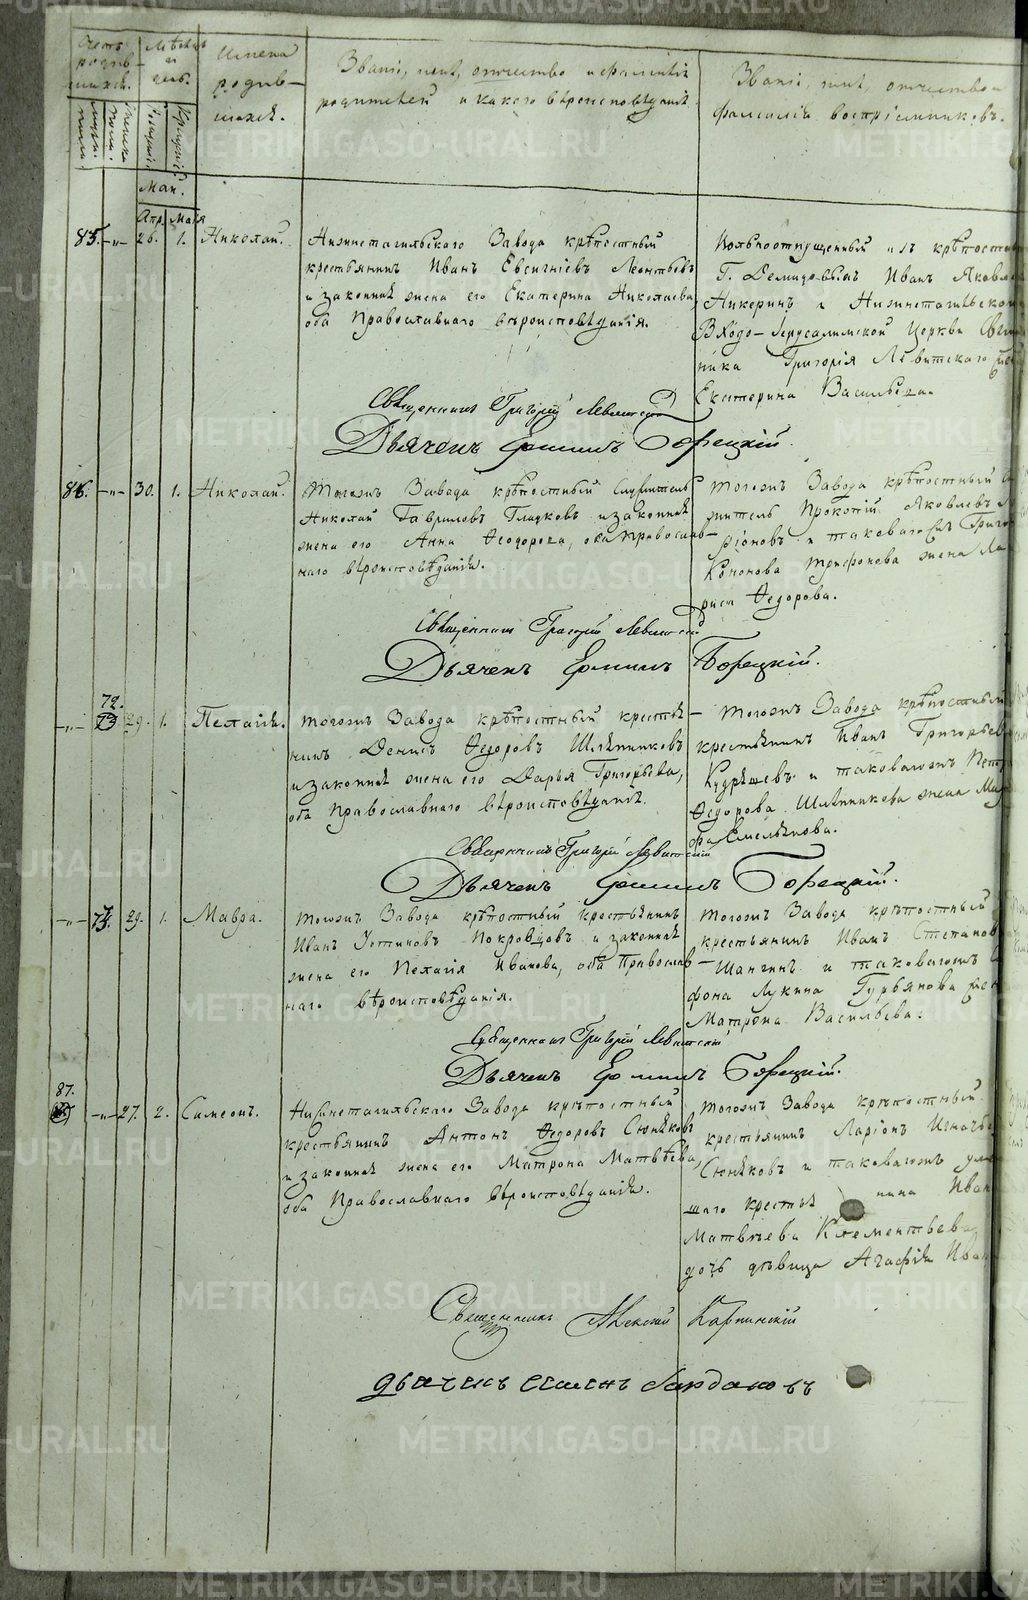 Счетъ родив-шихся.
Мѣсяцъ и день.
Имена родив-шихся.
Званіе, имя, отчество и фамилія родителей и какого вѣроисповѣданія.
Званіе, имя, отчество и фамилія воспріемниковъ.
Май.
Апр. Мая
85. -"- 26. 1. Николай.
Нижнетагильскаго Завода крѣпостный
крестьянинъ Иванъ Евсигніевъ Леонтьевъ
и законная жена его Екатерина Николаева
оба Православнаго вѣроисповѣданія.
Вольноотпущенный изъ крѣпост
Г. Демидовыхъ Иванъ Яковл
Аникеринъ и Нижнетагильско
Входо-Іерусалимской Церкви Свящ
ника Григорія Левитскаго
Екатерина Васильева.
Священникъ Григорій Левитскій
Дьячекъ Ермилъ Борецкій.
86. -"- 30. 1. Николай.
Тогожъ Завода крѣпостный Служитель
Николай Гавриловъ Гладковъ и законная
жена его Анна Ѳеодорова, оба Православ-
наго вѣроисповѣданія.
Тогожъ Завода крѣпостный С
житель Прокопій Яковлевъ
ріоновъ и таковаго Григор
Кононова Трифонова жена Ла
риса Ѳедорова.
Священникъ Григорій Левитскій
Дьячекъ Ермилъ Борецкій.
-"- 72. 29. 1. Пелагія.
Тогожъ Завода крѣпостный крестья
нинъ Денисъ Ѳедоровъ Шляпниковъ
и законная жена его Дарья Григорьева,
оба Православнаго вѣроисповѣданія.
Тогожъ Завода крѣпостный
крестьянинъ Иванъ Григорьев
Кудряшевъ и таковагожъ Петр
Ѳедорова Шляпникова жена Ма
фа Емельянова.
Священникъ Григорій Левитскій
Дьячекъ Ермилъ Борецкій.
-"- 73. 29. 1. Мавра.
Тогожъ Завода крѣпостный крестьянинъ
Иванъ Устиновъ Покровцовъ и законная
жена его Пелагія Иванова, оба Православ
наго вѣроисповѣданія.
Тогожъ Завода крѣпостный
крестьянинъ Иванъ Степанов
Шангинъ и таковагожъ
фона Лукина Гурьянова жен
Матрона Васильева.
Священникъ Григорій Левитскій
Дьячекъ Ермилъ Борецкій.
87. -"- 27. 2. Симеонъ.
Нижнетагильскаго Завода крѣпостный
крестьянинъ Антонъ Ѳедоровъ Сюняковъ
и законная жена его Матрона Матвѣева,
оба Православнаго вѣроисповѣданія.
Тогожъ Завода крѣпостный
крестьянинъ Ларіонъ Игнатье
Сюняковъ и таковагожъ уме
шаго крестья нина Иван
Матвѣева Клементьева
дочь дѣвица Агафія Иван
Священникъ Алексій Карпинскій
Дьячекъ Семенъ Бардаковъ
METRIKI.GASO-URAL.RU